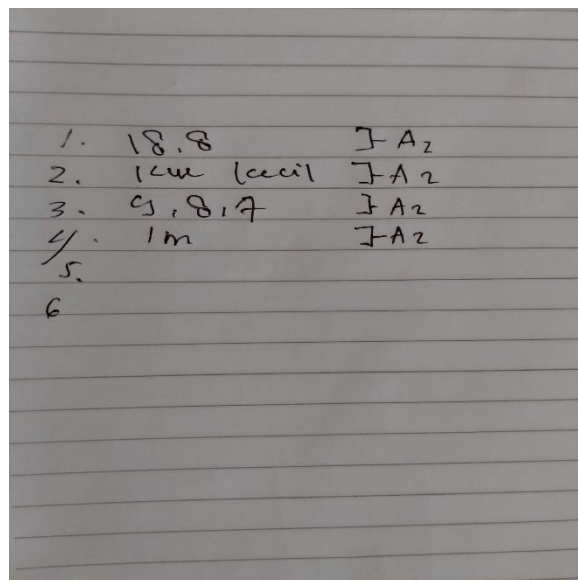 1. 18.8 ]- A2
2. 1 Kue kecil ]- A2
3. 9, 8, 7 ]- A2
4. 1m ]- A2
5.
6